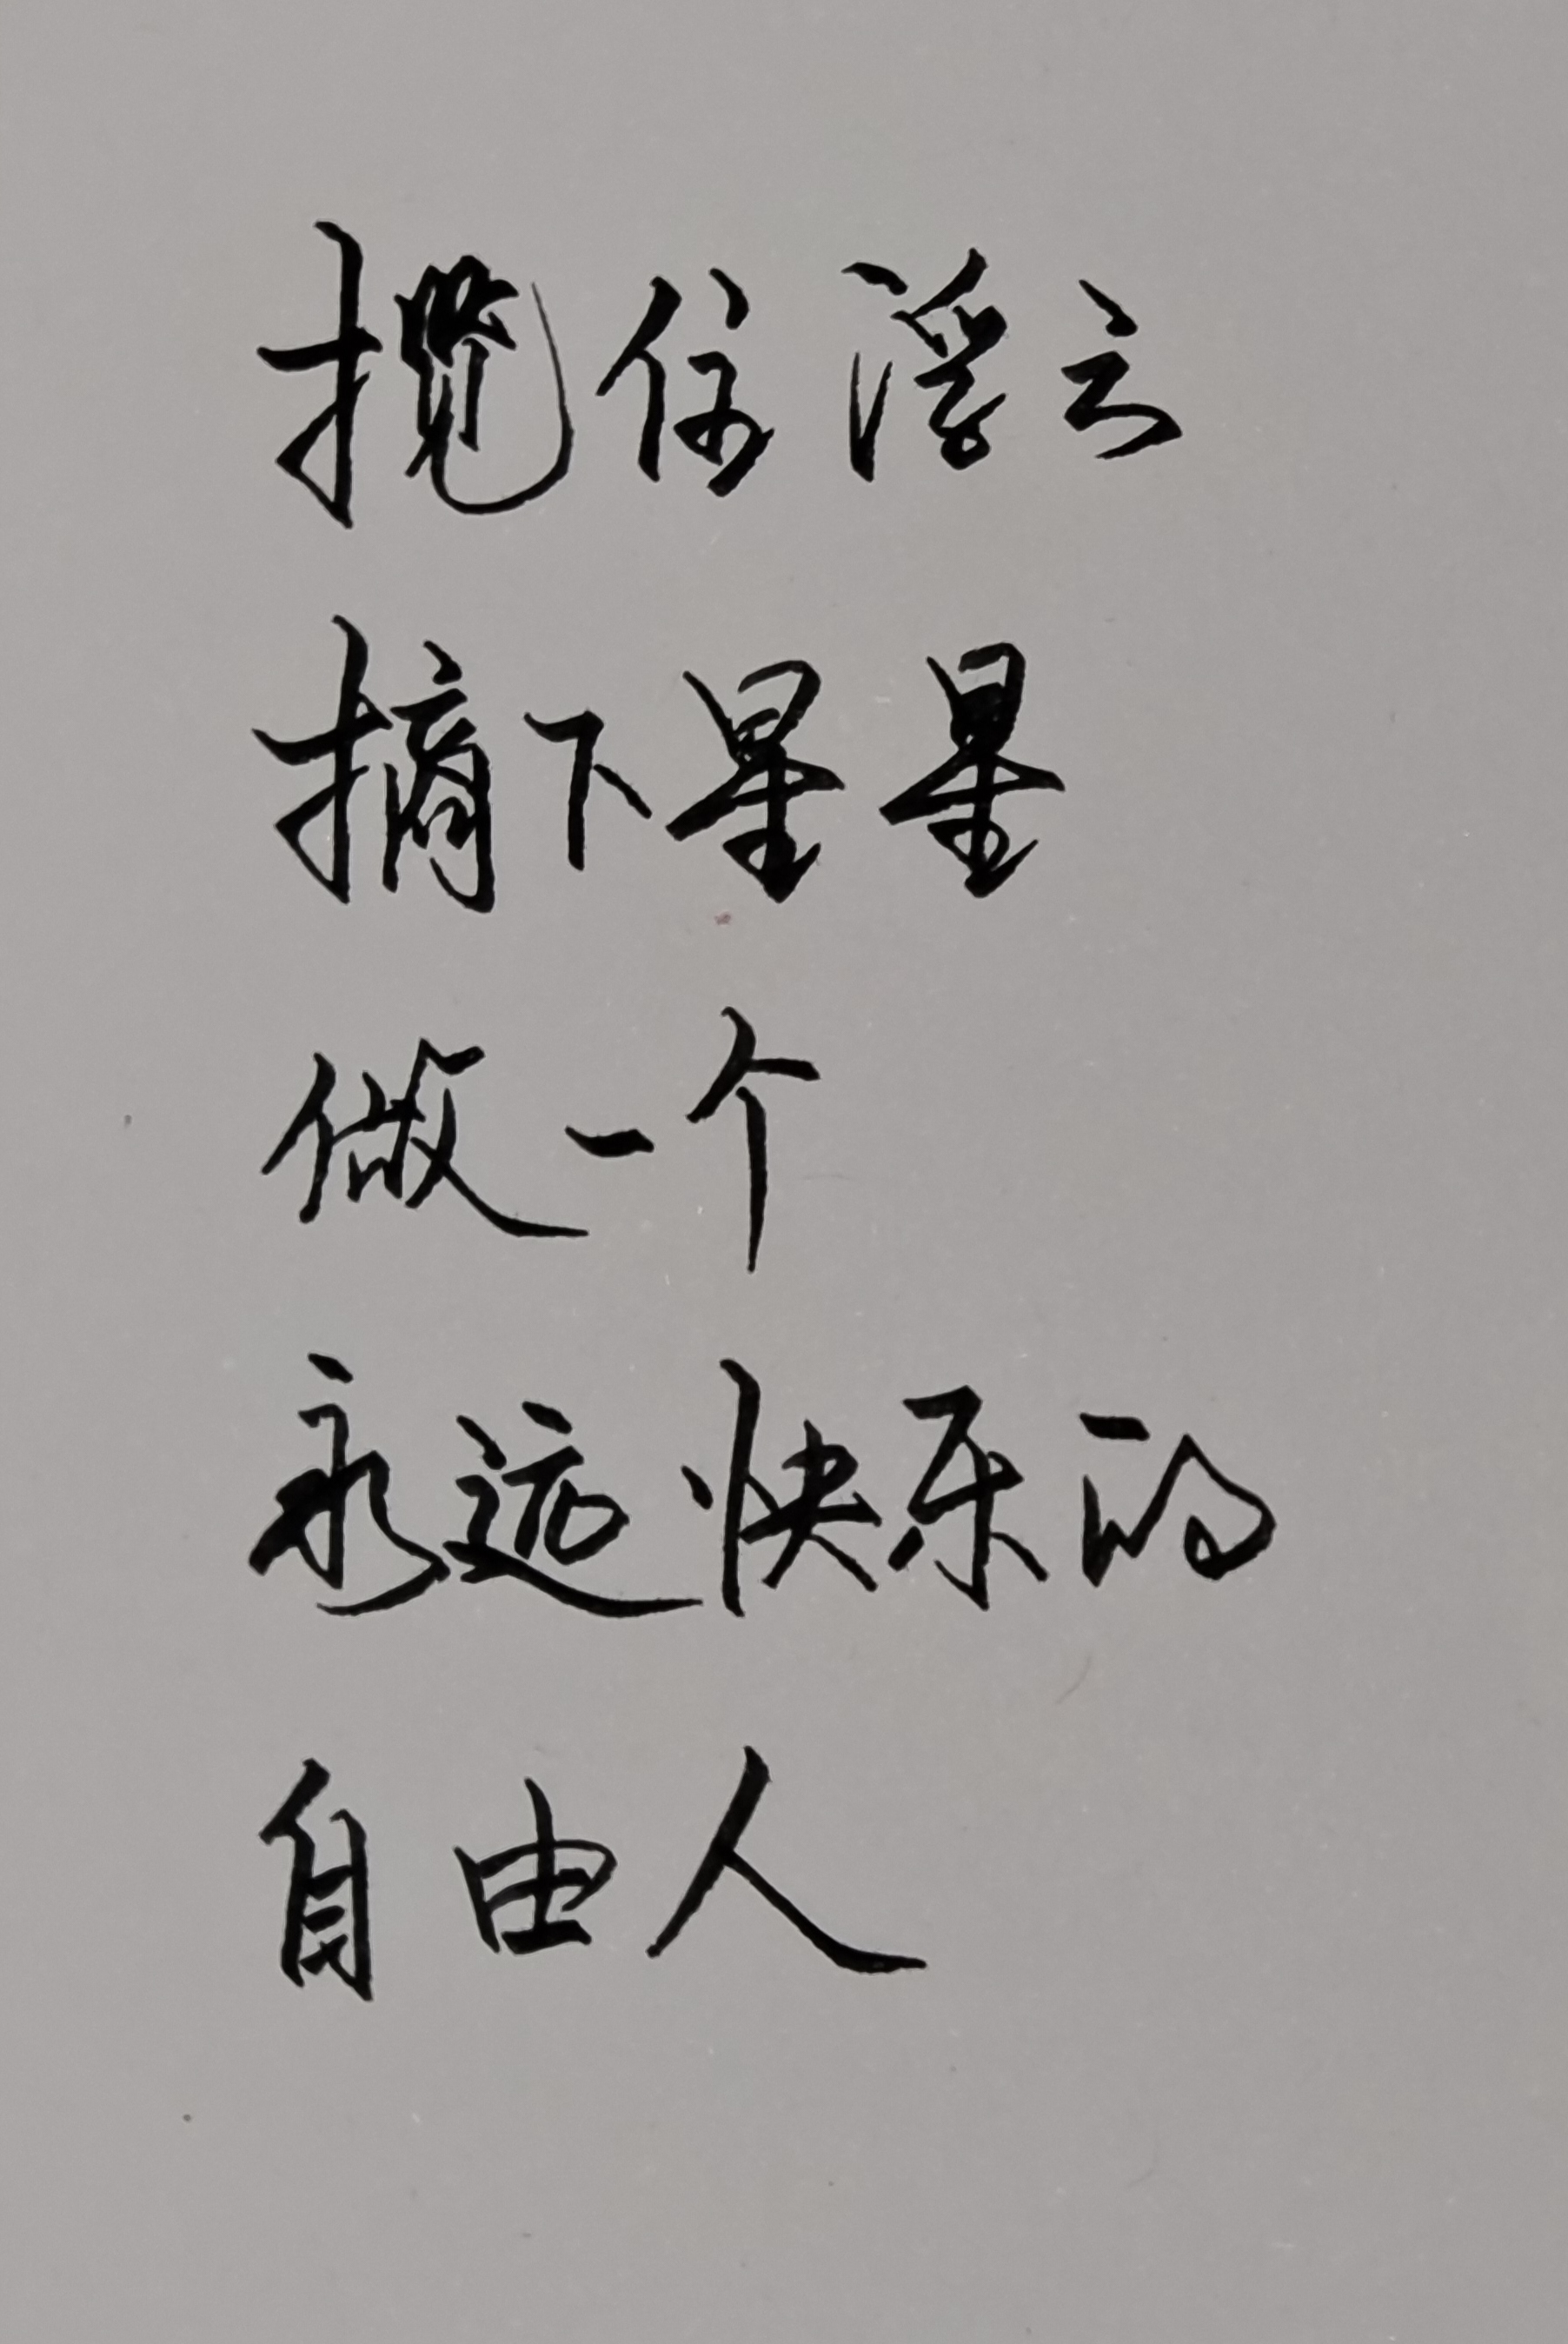 揽住浮云
摘下星星
做一个
永远快乐的
自由人